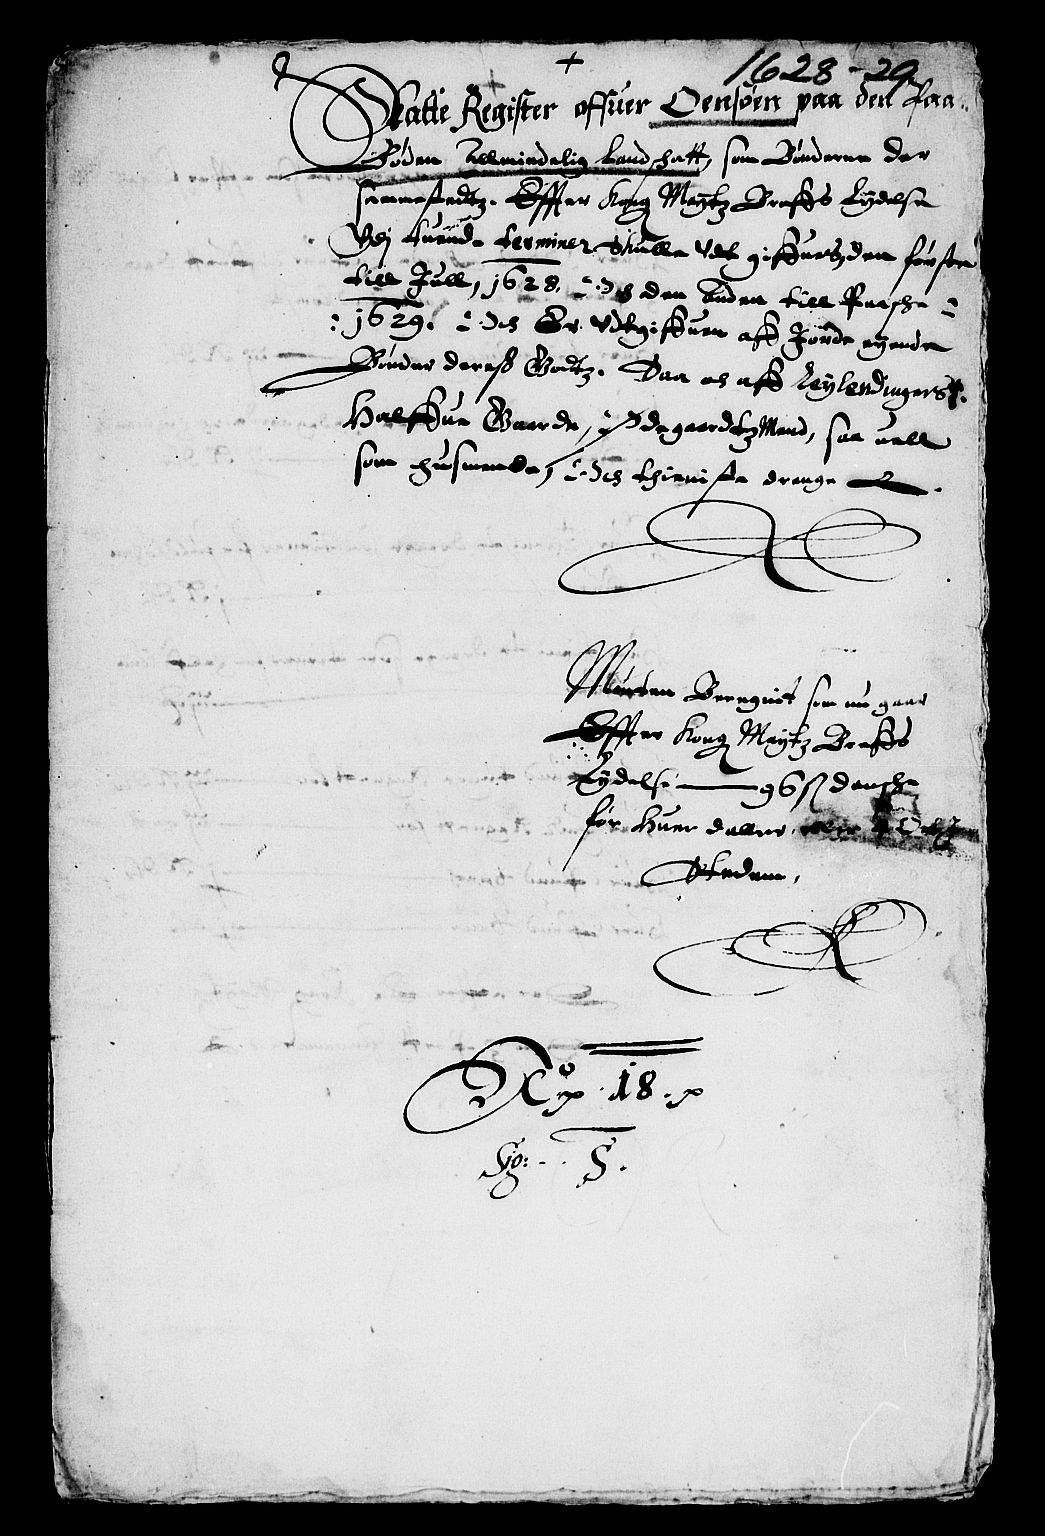 + 1628-29
Skatte Register offuer Oensøen paa den Paa-
Bøden Allmindelig Landschatt, som Bønderne der
sammestedtz. Effter Kong Maytz Breffs Lydelse
Udj tuende terminer skulle Udt giffues, den første
till Jull, 1628. Och den Anden till Paasche
1629. Och Er Udtgiffuen aff Jorde eyende
Bønder deres Godtz. Saa och aff Leylendinger
Halffue Gaarde, Ødegaardtz Mend, saa uell
som husmende, Och thieniste drenge

Mønten Beregnit som nu gaar
Effter Kong Maytz Breffs
Lydelse 96 ß danske
for huer daller,
Stedem,

No 18.
Sjg: S.